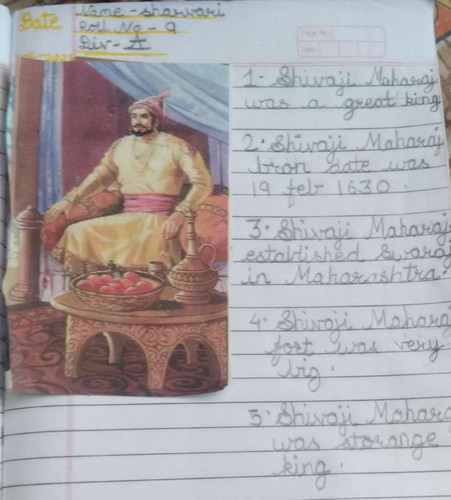 Date
Name - sharvari
Roll No - 9
Div - A
Page No.
Date
1. Shivaji Maharaj
was a great king
2. Shivaji Maharaj
bron date was
19 feb 1630.
3. Shivaji Maharaj
established Swaraj
in Maharashtra
4. Shivaji Maharaj
fort was very
big.
5. Shivaji Mahara
was storange
king.